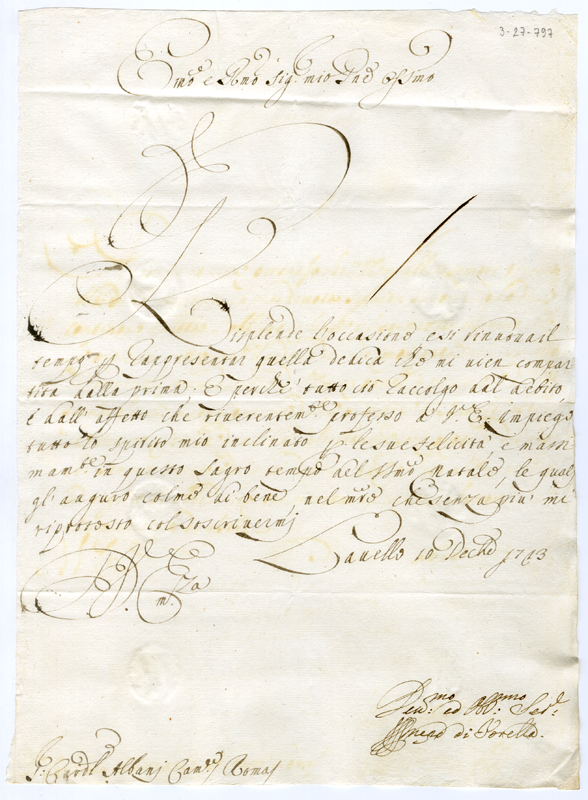 3-27-797
Em̃o e Rm̃o Sig.r mio Pñe Ossmo
Risplende l'occasione, e si rinnova il
tempo di rappresentar quella che mi vien compar
tita dalla prima. E perche tutto ciò raccolgo dal debito,
e dall'affetto che riverentem.te professo a V.E. impiego
tutto lo spirito mio inclinato p le sue felicità, e massi
mam.te in questo sagro tempo del SSmo Natale, le quali
gl'auguro colme di bene, nel m̃re che senza più mi
riprotesto col soscrivermi
Lavello 10 Dec.he 1743
V. E.za
m.
Dev.mo ed Obb.mo Ser.e
di Torella
S.r Card.l Albani Cam.o Roma